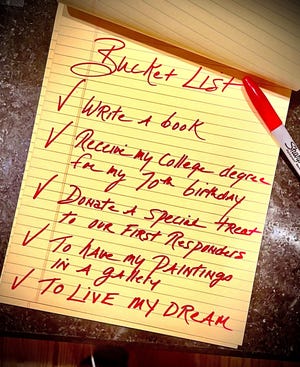 Bucket List
✓ Write a book
✓ Receive my college degree
for my 70th birthday
✓ Donate a special treat
to our First Responders
✓ To have my paintings
in a gallery
✓ To Live My Dream